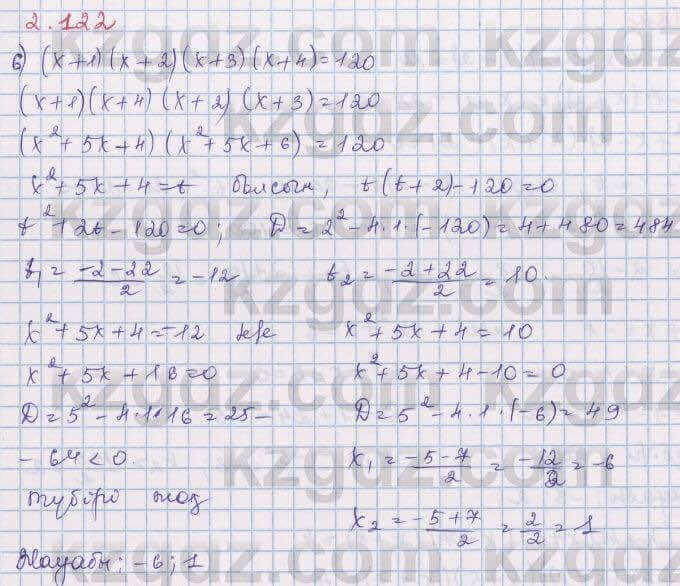 2.122
б) (x+1)(x+2)(x+3)(x+4)=120
(x+1)(x+4)(x+2)(x+3)=120
(x²+5x+4)(x²+5x+6)=120
x²+5x+4=t болсын, t(t+2)-120=0
t²+2t-120=0; D=2²-4·1·(-120)=4+480=484
t₁=(-2-22)/2=-12 t₂=(-2+22)/2=10.
x²+5x+4=-12 және x²+5x+4=10
x²+5x+16=0 x²+5x+4-10=0
D=5²-4·1·16=25- D=5²-4·1·(-6)=49
-64<0. x₁=(-5-7)/2=-12/2=-6
түбірі жоқ x₂=(-5+7)/2=2/2=1
Жауабы: -6; 1
kzgdz.com